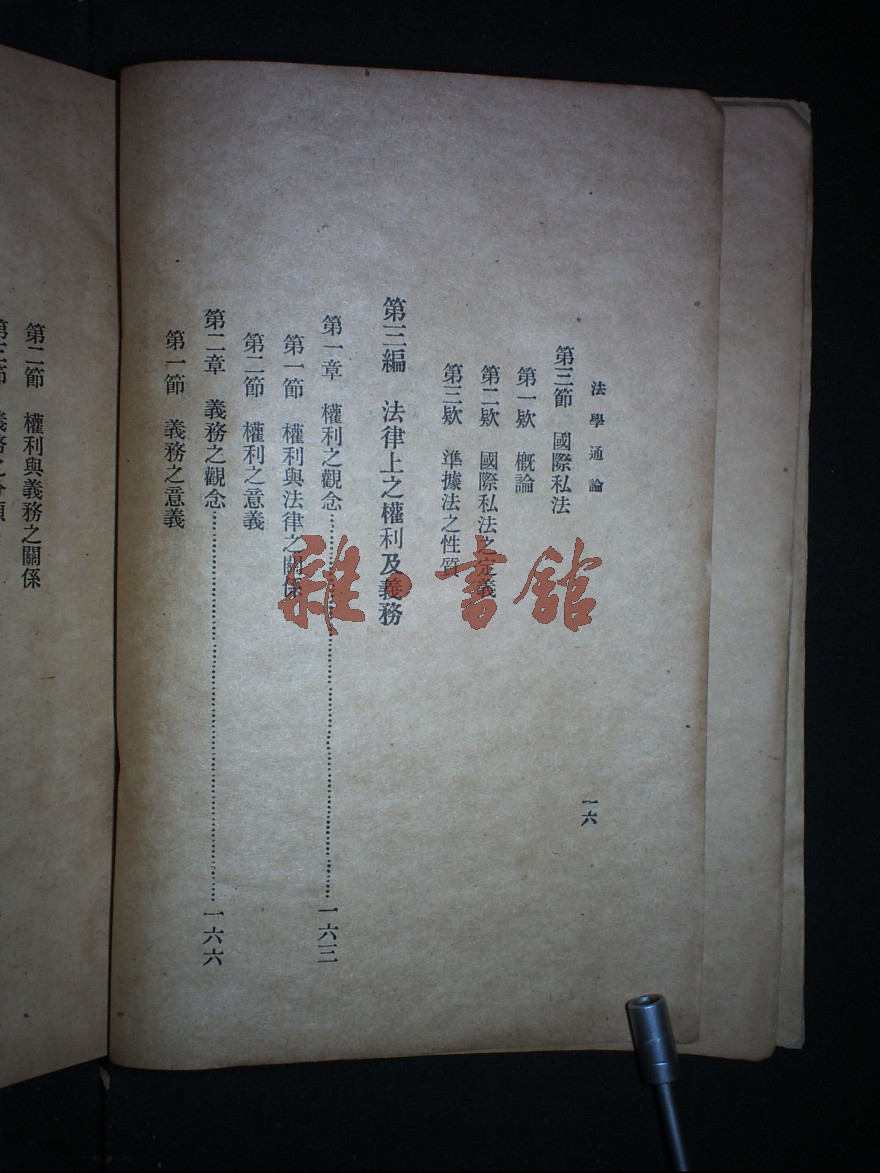 法學通論
一六
第三節　國際私法
第一欵　概論
第二欵　國際私法之定義
第三欵　準據法之性質
第三編　法律上之權利及義務
第一章　權利之觀念……一六三
第一節　權利與法律之關係
第二節　權利之意義
第二章　義務之觀念……一六六
第一節　義務之意義
第二節　權利與義務之關係
第三節　義務之分類
雜·書館